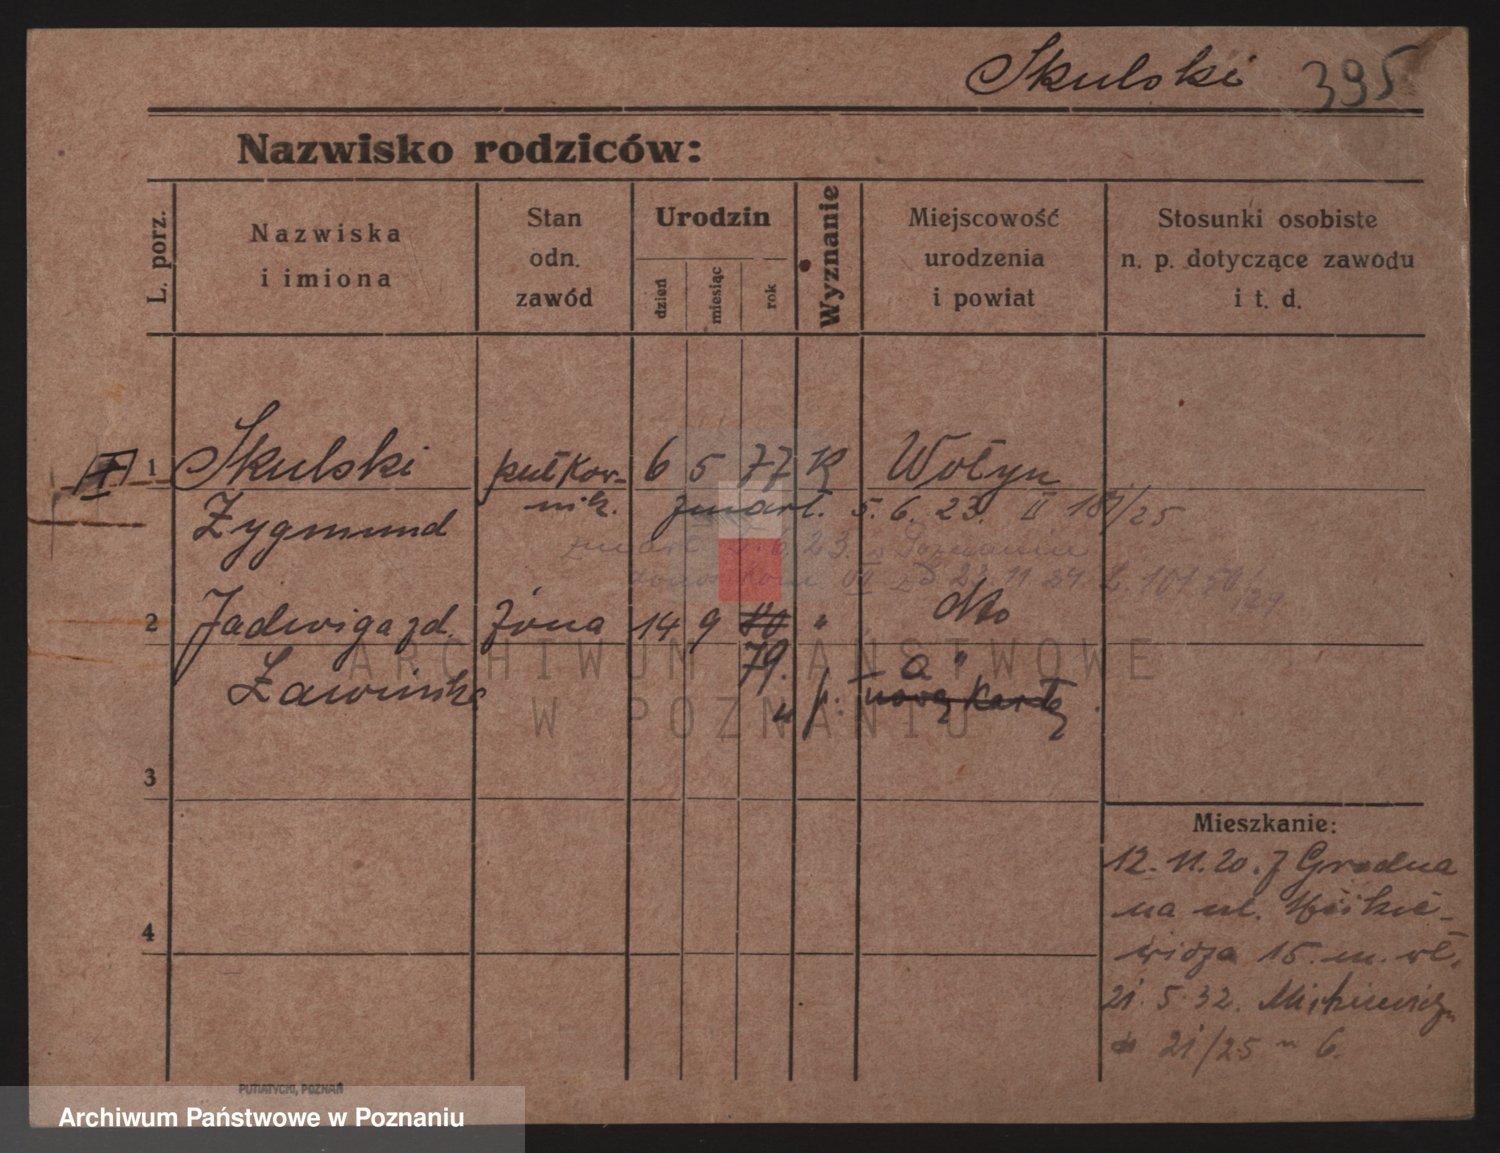 Skulski 395
Nazwisko rodziców:
L. porz.
Nazwiska
i imiona
Stan
odn.
zawód
Urodzin
dzień
miesiąc
rok
Wyznanie
Miejscowość
urodzenia
i powiat
Stosunki osobiste
n. p. dotyczące zawodu
i t. d.
1 Skulski pułkow- 6 5 77 K Wołyn
Zygmund nik. zmarł. 5. 6. 23. II 187/25
zmarł 5. 6. 23. w Poznaniu
2 Jadwiga zd. żona 14 9 80 " dto
79.
nową kartę
3
4
Mieszkanie:
12. 11. 20. z Grodna
na ul. Mickie-
wicza 15. m. wł.
21. 5. 32. Mickiewicz
21/25 m 6.
PUTIATYCKI, POZNAŃ
ARCHIWUM PAŃSTWOWE
W POZNANIU
Archiwum Państwowe w Poznaniu